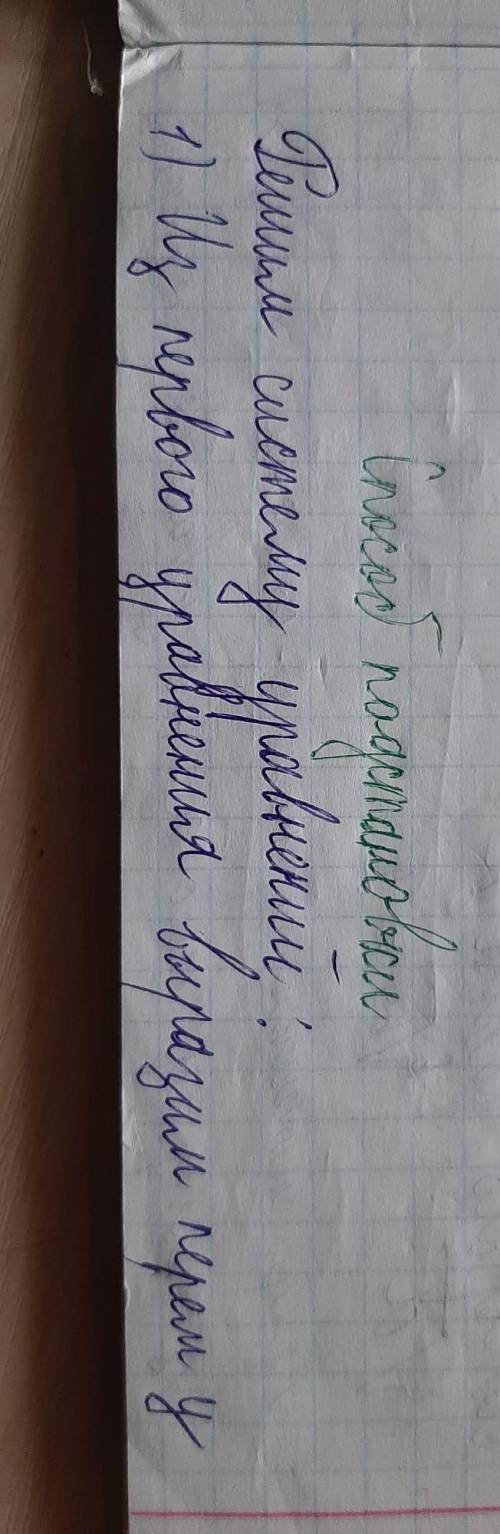 Способ подстановки
Решим систему уравнений:
1) Из первого уравнения выразим перем у